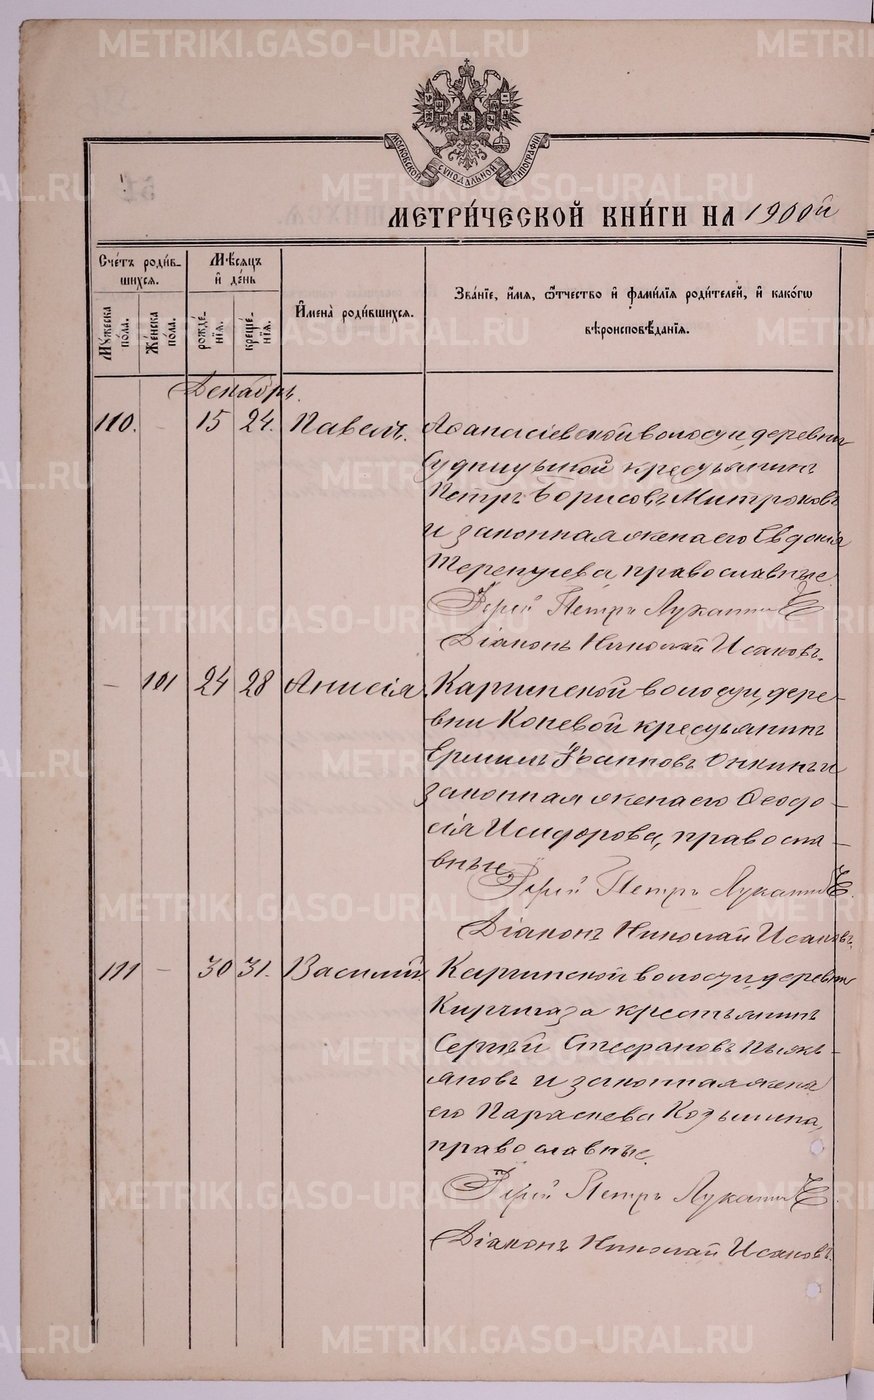 METRIKI.GASO-URAL.RU
МОСКОВСКОЙ СѴНОДАЛЬНОЙ ТИПОГРАФІИ
МЕТРИ́ЧЕСКОЙ КНИ́ГИ НА 1900й
Сче́тъ роди́вшихся.
Му́жеска по́ла.
Же́нска по́ла.
Мѣ́сяцъ и҆ де́нь
рожде́нїя.
креще́нїя.
И҆мена̀ роди́вшихся.
Зва́нїе, и҆́мя, ѻ҆́тчество и҆ фами́лїя роди́телей, и҆ како́гѡ
вѣроисповѣ́данїя.
Декабрь.
110. - 15 24. Павелъ. Аѳанасіевской волости, деревни
крестьянинъ
Петръ Борисовъ Митряковъ
и законная жена его Евдокія
Терентьева, православные.
Іерей Петръ Луканинъ
Діаконъ Николай Исаковъ.
- 101 24 28 Анисія. Каргинской волости, дере-
вни Коневой крестьянинъ
Ермилъ Іоанновъ Онкинъ и
законная жена его Ѳеодо-
сія Исидорова, правосла-
вные.
Іерей Петръ Луканинъ
Діаконъ Николай Исаковъ.
111 - 30 31. Василій. Каргинской волости, деревни
Киргишаза крестьянинъ
Сергѣй Стефановъ Пьянь-
яновъ и законная жена
его Параскева Козьмина,
православные.
Іерей Петръ Луканинъ
Діаконъ Николай Исаковъ.